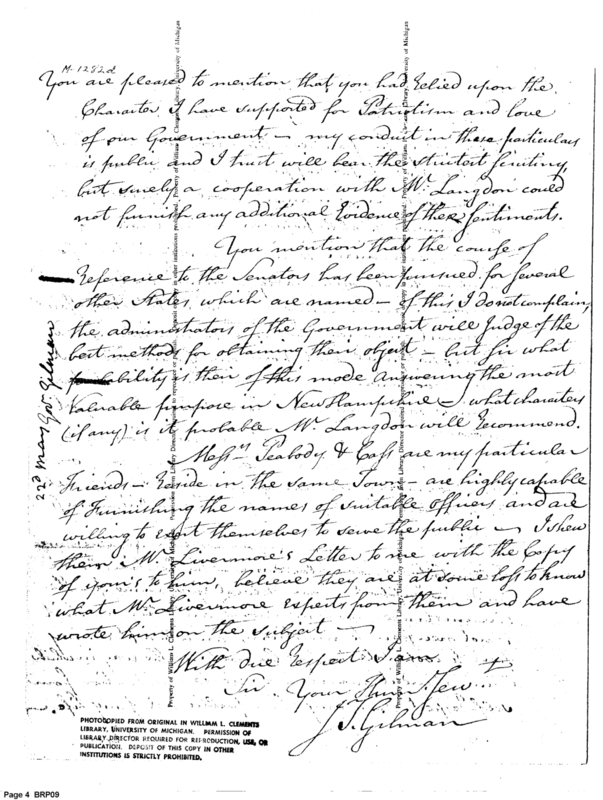 M-1282d
You are pleased to mention that you had relied upon the
Character I have supported for Patriotism and love
of our Government — my conduct in these particulars
is public and I trust will bear the strictest scrutiny,
but surely a cooperation with Mr. Langdon could
not furnish any additional Evidence of these Sentiments.
You mention that the course of
Reference to the Senators has been pursued for several
other States, which are named — of this I do not complain,
the administrators of the Government will Judge of the
best methods for obtaining their object — but Sir what
probability is their of this mode answering the most
Valuable purpose in New Hampshire — what characters
(if any) is it probable Mr. Langdon will recommend.
Messrs Peabody & Cass are my particular
Friends — reside in the same Town — are highly capable
of Furnishing the names of suitable officers and are
willing to exert themselves to serve the public — I shew
them Mr. Livermore's Letter to me with the Copy
of your's to him, believe they are at some loss to know
what Mr. Livermore expects from them and have
wrote him on the subject —
With due respect I am
Sir Your Hum. Servt
J. T. Gilman
22d May Gov. Gilman
Property of William L. Clements Library, University of Michigan
PHOTOCOPIED FROM ORIGINAL IN WILLIAM L. CLEMENTS
LIBRARY, UNIVERSITY OF MICHIGAN. PERMISSION OF
LIBRARY DIRECTOR REQUIRED FOR REPRODUCTION, USE, OR
PUBLICATION. DEPOSIT OF THIS COPY IN OTHER
INSTITUTIONS IS STRICTLY PROHIBITED.
Page 4 BRP09